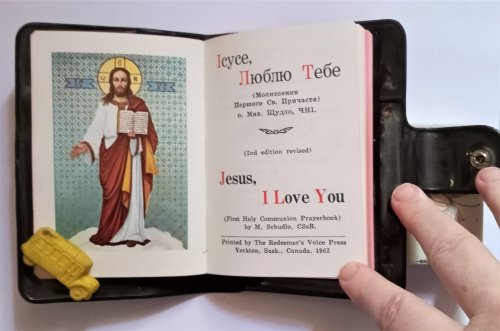 ІС
ХС
Ісусе,
Люблю Тебе
(Молитовник
Першого Св. Причастя)
о. Мих. Щудло, ЧНІ.
(2nd edition revised)
Jesus,
I Love You
(First Holy Communion Prayerbook)
by M. Schudlo, CSsR.
Printed by The Redeemer's Voice Press
Yorkton, Sask., Canada, 1962